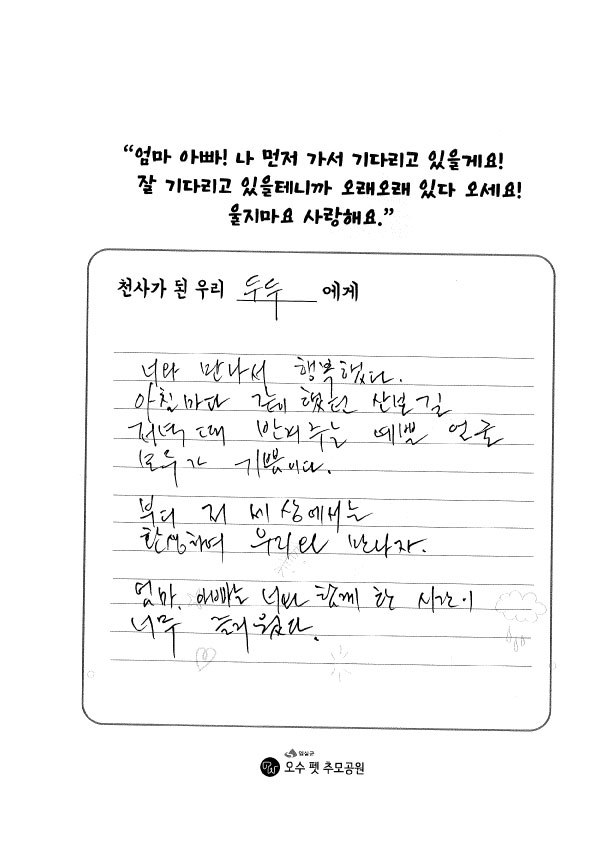 “엄마 아빠! 나 먼저 가서 기다리고 있을게요!
잘 기다리고 있을테니까 오래오래 있다 오세요!
울지마요 사랑해요.”
천사가 된 우리 두두 에게
너와 만나서 행복했다.
아침마다 같이 했던 산보길
저녁때 반겨주는 예쁜 얼굴
모두가 기쁨이다.
부디 저 세상에서는
환생하여 우리와 만나자.
엄마. 아빠는 너와 함께 한 시간이
너무 즐거웠다.
임실군
오수 펫 추모공원